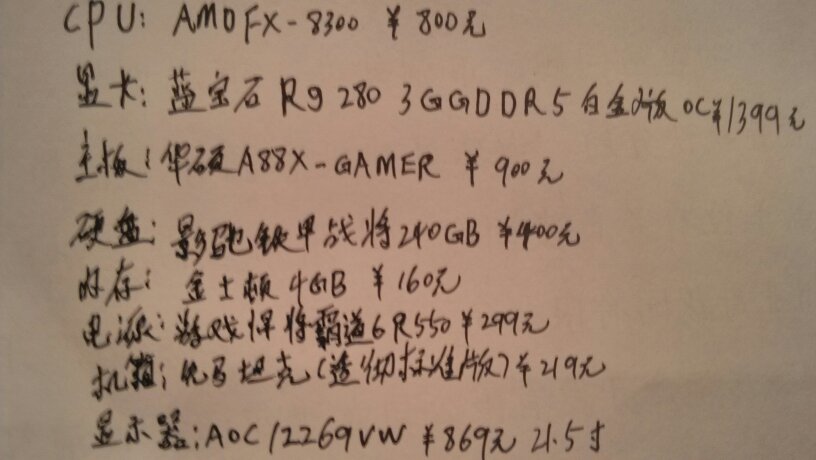 CPU: AMD FX-8300 ¥800元
显卡: 蓝宝石 R9 280 3G GDDR5 白金版 OC ¥1399元
主板: 华硕A88X-GAMER ¥900元
硬盘: 影驰铁甲战将240GB ¥400元
内存: 金士顿 4GB ¥160元
电源: 游戏悍将霸道6R550 ¥299元
机箱: 先马坦克(透彻标准版) ¥219元
显示器: AOC I2269VW ¥869元 21.5寸